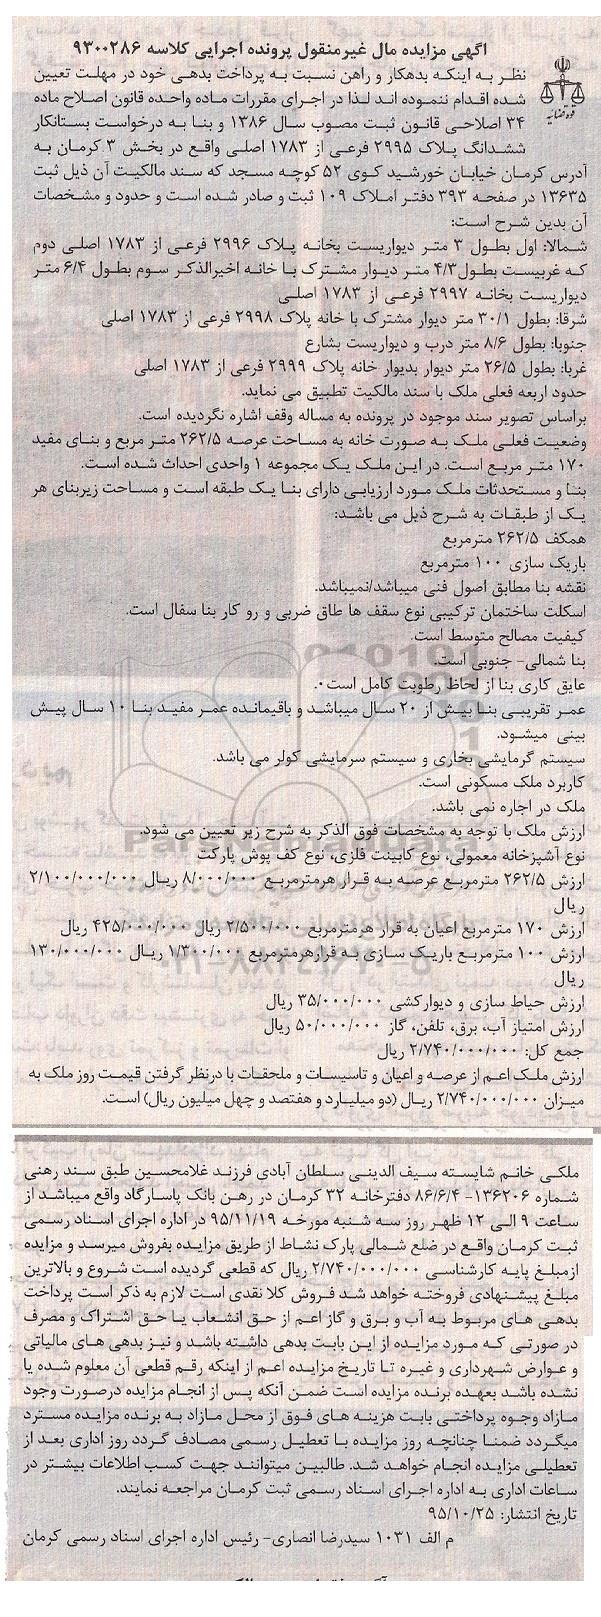 آگهی مزایده مال غیرمنقول پرونده اجرایی کلاسه ۹۳۰۰۲۸۶
نظر به اینکه بدهکار و راهن نسبت به پرداخت بدهی خود در مهلت تعیین
شده اقدام ننموده اند لذا در اجرای مقررات ماده واحده قانون اصلاح ماده
۳۴ اصلاحی قانون ثبت مصوب سال ۱۳۸۶ و بنا به درخواست بستانکار
ششدانگ پلاک ۲۹۹۵ فرعی از ۱۷۸۳ اصلی واقع در بخش ۳ کرمان به
آدرس کرمان خیابان خورشید کوی ۵۲ کوچه مسجد که سند مالکیت آن ذیل ثبت
۱۳۶۳۵ در صفحه ۳۹۳ دفتر املاک ۱۰۹ ثبت و صادر شده است و حدود و مشخصات
آن بدین شرح است:
شمالا: اول بطول ۳ متر دیواریست بخانه پلاک ۲۹۹۶ فرعی از ۱۷۸۳ اصلی دوم
که غربیست بطول ۴/۳ متر دیوار مشترک با خانه اخیرالذکر سوم بطول ۶/۴ متر
دیواریست بخانه ۲۹۹۷ فرعی از ۱۷۸۳ اصلی
شرقا: بطول ۳۰/۱ متر دیوار مشترک با خانه پلاک ۲۹۹۸ فرعی از ۱۷۸۳ اصلی
جنوبا: بطول ۸/۶ متر درب و دیواریست بشارع
غربا: بطول ۲۶/۵ متر دیوار بدیوار خانه پلاک ۲۹۹۹ فرعی از ۱۷۸۳ اصلی
حدود اربعه فعلی ملک با سند مالکیت تطبیق می نماید.
براساس تصویر سند موجود در پرونده به مساله وقف اشاره نگردیده است.
وضعیت فعلی ملک به صورت خانه به مساحت عرصه ۲۶۲/۵ متر مربع و بنای مفید
۱۷۰ متر مربع است. در این ملک یک مجموعه ۱ واحدی احداث شده است.
بنا و مستحدثات ملک مورد ارزیابی دارای بنا یک طبقه است و مساحت زیربنای هر
یک از طبقات به شرح ذیل می باشد:
همکف ۲۶۲/۵ مترمربع
باریک سازی ۱۰۰ مترمربع
نقشه بنا مطابق اصول فنی میباشد/نمیباشد.
اسکلت ساختمان ترکیبی نوع سقف ها طاق ضربی و رو کار بنا سفال است.
کیفیت مصالح متوسط است.
بنا شمالی- جنوبی است.
عایق کاری بنا از لحاظ رطوبت کامل است۰
عمر تقریبی بنا بیش از ۲۰ سال میباشد و باقیمانده عمر مفید بنا ۱۰ سال پیش
بینی میشود.
سیستم گرمایشی بخاری و سیستم سرمایشی کولر می باشد.
کاربرد ملک مسکونی است.
ملک در اجاره نمی باشد.
ارزش ملک با توجه به مشخصات فوق الذکر به شرح زیر تعیین می شود.
نوع آشپزخانه معمولی، نوع کابینت فلزی، نوع کف پوش پارکت
ارزش ۲۶۲/۵ مترمربع عرصه به قرار هرمترمربع ۸/۰۰۰/۰۰۰ ریال ۲/۱۰۰/۰۰۰/۰۰۰
ریال
ارزش ۱۷۰ مترمربع اعیان به قرار هرمترمربع ۲/۵۰۰/۰۰۰ ریال ۴۲۵/۰۰۰/۰۰۰ ریال
ارزش ۱۰۰ مترمربع باریک سازی به قرارهرمترمربع ۱/۳۰۰/۰۰۰ ریال ۱۳۰/۰۰۰/۰۰۰
ریال
ارزش حیاط سازی و دیوارکشی ۳۵/۰۰۰/۰۰۰ ریال
ارزش امتیاز آب، برق، تلفن، گاز ۵۰/۰۰۰/۰۰۰ ریال
جمع کل: ۲/۷۴۰/۰۰۰/۰۰۰ ریال
ارزش ملک اعم از عرصه و اعیان و تاسیسات و ملحقات با درنظر گرفتن قیمت روز ملک به
میزان ۲/۷۴۰/۰۰۰/۰۰۰ ریال (دو میلیارد و هفتصد و چهل میلیون ریال) است.
ملکی خانم شایسته سیف الدینی سلطان آبادی فرزند غلامحسین طبق سند رهنی
شماره ۱۳۶۲۰۶- ۸۶/۶/۴ دفترخانه ۳۲ کرمان در رهن بانک پاسارگاد واقع میباشد از
ساعت ۹ الی ۱۲ ظهر روز سه شنبه مورخه ۹۵/۱۱/۱۹ در اداره اجرای اسناد رسمی
ثبت کرمان واقع در ضلع شمالی پارک نشاط از طریق مزایده بفروش میرسد و مزایده
ازمبلغ پایه کارشناسی ۲/۷۴۰/۰۰۰/۰۰۰ ریال که قطعی گردیده است شروع و بالاترین
مبلغ پیشنهادی فروخته خواهد شد فروش کلا نقدی است لازم به ذکر است پرداخت
بدهی های مربوط به آب و برق و گاز اعم از حق انشعاب یا حق اشتراک و مصرف
در صورتی که مورد مزایده از این بابت بدهی داشته باشد و نیز بدهی های مالیاتی
و عوارض شهرداری و غیره تا تاریخ مزایده اعم از اینکه رقم قطعی آن معلوم شده یا
نشده باشد بعهده برنده مزایده است ضمن آنکه پس از انجام مزایده درصورت وجود
مازاد وجوه پرداختی بابت هزینه های فوق از محل مازاد به برنده مزایده مسترد
میگردد ضمنا چنانچه روز مزایده با تعطیل رسمی مصادف گردد روز اداری بعد از
تعطیلی مزایده انجام خواهد شد. طالبین میتوانند جهت کسب اطلاعات بیشتر در
ساعات اداری به اداره اجرای اسناد رسمی ثبت کرمان مراجعه نمایند.
تاریخ انتشار: ۹۵/۱۰/۲۵
م الف ۱۰۳۱ سیدرضا انصاری- رئیس اداره اجرای اسناد رسمی کرمان